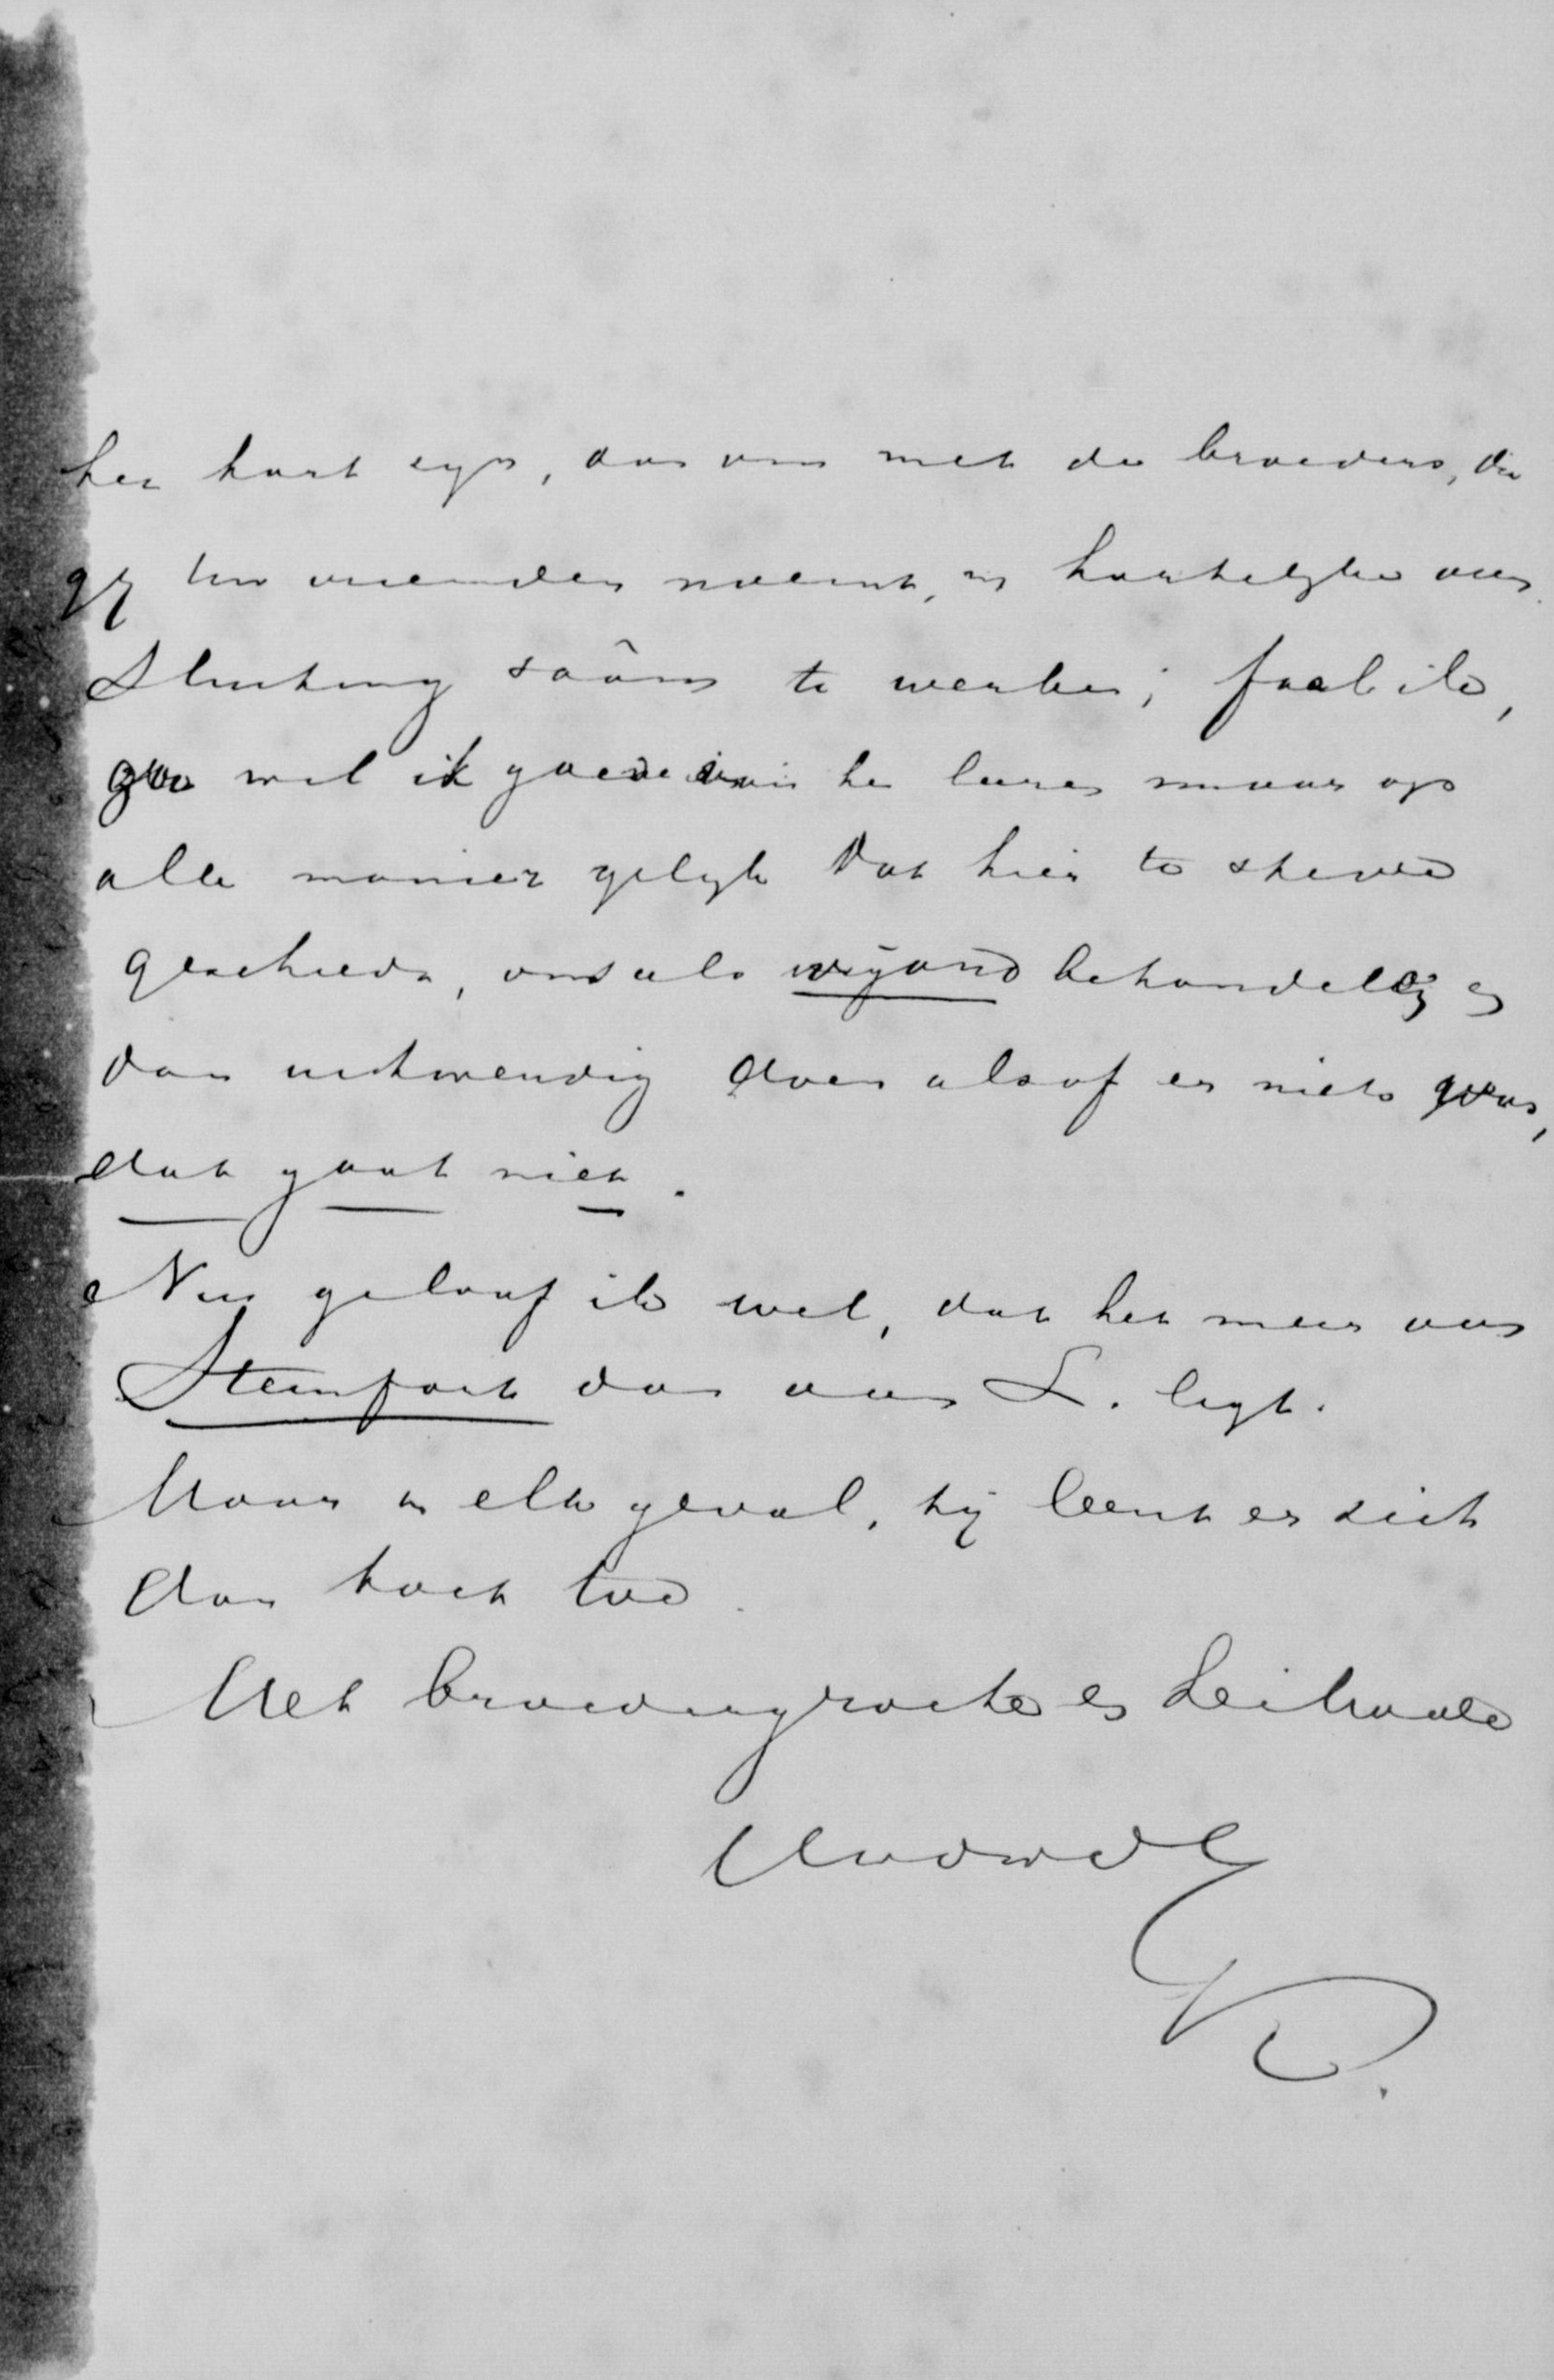 het hart zijn, dan om met de broeders, die
gij uw vrienden noemt, in hartelijke aan
sluiting saâm te werken; faal ik,
zoo wil ik gaarne te leeren maar op
alle manier gelijk dat hier te steeds
geschiedt, ons als vijand behandelen en
dan uitwendig doen alsof er niets was,
dat gaat niet.
Nu geloof ik wel, dat het meer aan
Steinfort dan aan L. ligt.
Maar in elk geval, hij leent er zich
dan toch toe.
Met broedergroete en heilbede
K.